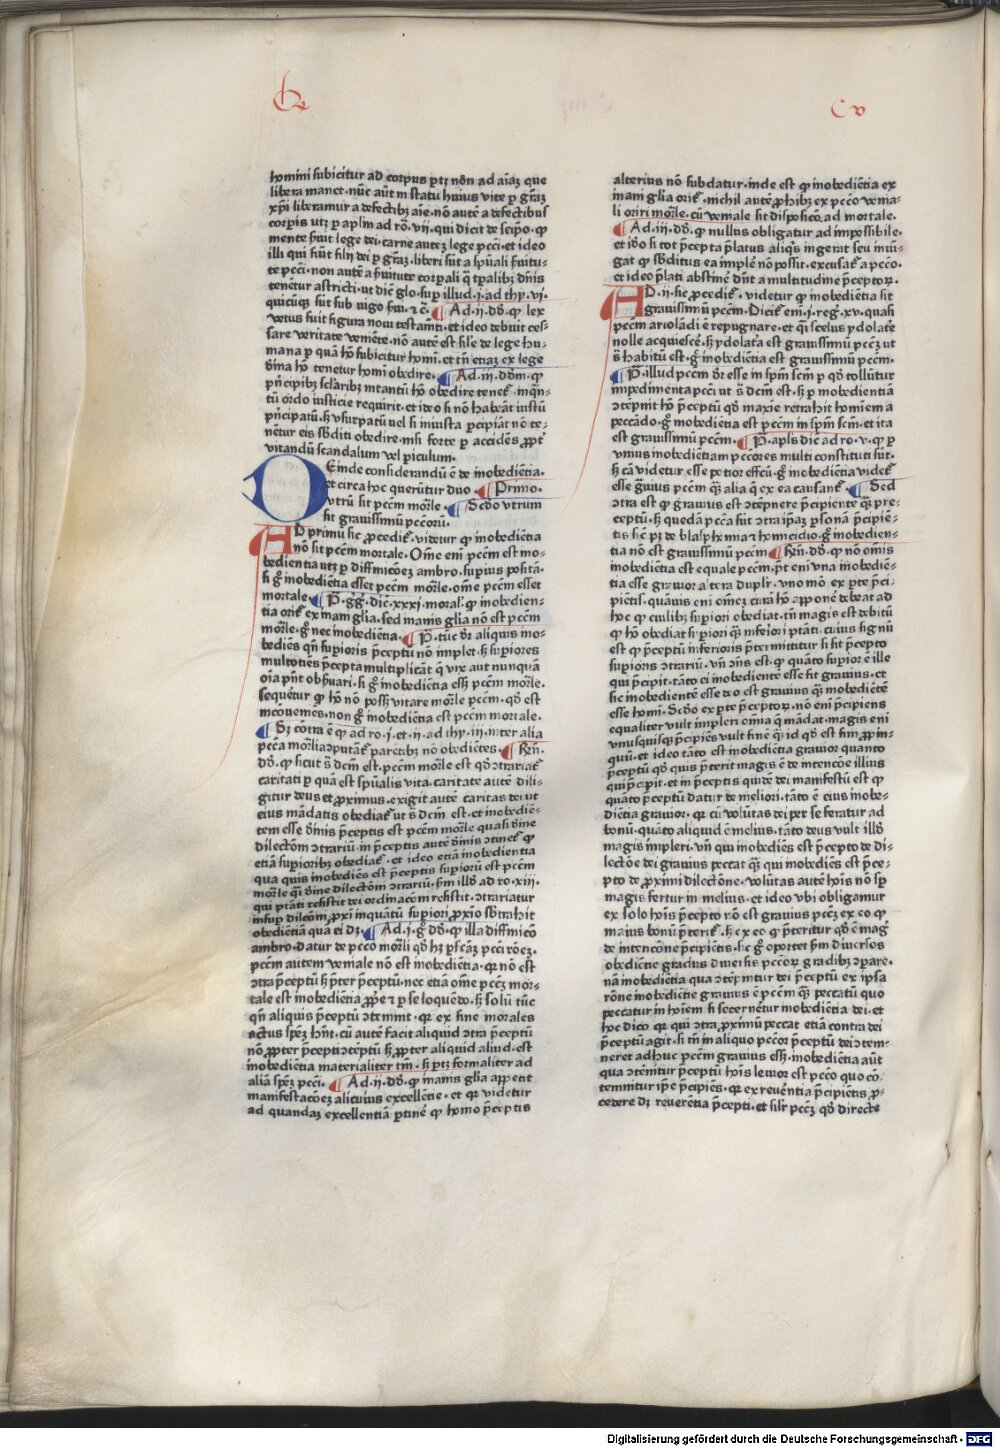 C v
homini subicitur ad corpus ptꝫ nō̄ ad aīaꝫ que
libera manet·nūc aūt in statu huius vite p grāꝫ
xp̄i liberamur a defectibꝫ aīe·nō autē a defectibus
corpis utꝫ p aplm ad ro·vii·qui dicit de seip̄o·ꝙ
mente ẜuit lege dei·carne auteꝫ lege pcc̄i·et ideo
illi qui fiūt filij dei p grāꝫ·liberi sūt a sp̄uali ẜuitu⸗
te pcc̄i·non autē a ẜuitute corpali q̄ tpalibꝫ dn̄is
tenētur astricti·ut dic̄ glo·sup illud·i·ad thy·vi·
quicūqꝫ sūt sub iugo ẜui·⁊c̄· Ad·ii·dō·ꝙ lex
vetus fuit figura noui testam̄ti·et ideo debuit ces⸗
sare veritate veniēte·nō autē est sil̄e de lege hu⸗
mana p quā hō subicitur homī·et tn̄ etiaꝫ ex lege
dīna hō tenetur homī obedire· Ad·iii·dōm·ꝙ
pn̄cipibꝫ sclaribꝫ intantū hō obedire tenet·inqn̄⸗
tū ordo iusticie requirit·et ideo si nō habeāt iustū
pn̄cipatū·ẜ vsurpatū uel si iniusta pcipiāt nō te⸗
nētur eis sb̄diti obedire·nisi forte p accidēs ꝓpt̄
vitandū scandalum vel piculum·
DEinde considerandū ē de inobediētia·
et circa hoc querūtur duo· Primo·
vtrū sit pcc̄m mōrle· Scd̄o vtrum
sit grauissimū pccoru·
AD primū sic ꝓcedit·videtur ꝙ inobediētia
nō sit pcc̄m mortale·Om̄e eni pcc̄m est ino⸗
bedientia utꝫ p diffinicōeꝫ ambro·supius positā·
si gͦ inobediētia esset pcc̄m mōrle·om̄e pcc̄m esset
mortale· P̄·gḡ·dic̄·xxxi·moral·ꝙ inobedien⸗
tia orit ex inani glia·sed inanis glia nō est pcc̄m
mōrle·gͦ nec inobediētia· P̄·tūc dr̄ aliquis ino⸗
bediēs qn̄ supioris p̄ceptū nō implet·ẜ supiores
multotiēs p̄cepta multiplicāt q̄ vix aut nunquā
oīa pn̄t obẜuari·si gͦ inobediētia eēt pcc̄m mōrle·
sequētur ꝙ hō nō posꝫ vitare mōrle pcc̄m·qd̄ est
incōueniēs·non gͦ inobediētia est pcc̄m mortale·
Sꝫ cōtra ē ꝙ ad ro·i·et·ii·ad thy·iii·inter alia
pccā mōrlia ɔputāt parētibꝫ nō obediētes· Rn̄·
dō·ꝙ sicut s̄ dcm̄ est·pcc̄m mōrle est qd̄ ɔtrariat
caritati p quā est sp̄ualis vita·caritate autē dili⸗
gitur deus et ꝓximus·exigit autē caritas dei ut
eius mādatis obediat ut s̄ dcm̄ est·et inobediē⸗
tem esse dīnis p̄ceptis est pcc̄m mōrle quasi dīne
dilectōni ɔtrariū·in p̄ceptis autē dīnis ɔtinet ꝙ
etiā supioribꝫ obediat·et ideo etiā inobedientia
qua quis inobediēs est p̄ceptis supiorū est pcc̄m
mōrle q̄i dīne dilectōni ɔtrariū·ẜm illd̄ ad ro·xiii·
qui ptāti resistit dei ordinacōni resistit·ɔtrariatur
insup dilcōni ꝓximi inquātū supiori ꝓxīo sb̄trahit
obediētiā quā ei dꝫ· Ad·i·gͦ dō·ꝙ illa diffinicō
ambro·datur de pccō mōrli qd̄ hꝫ pfcāꝫ pcc̄i rōeꝫ·
pcc̄m autem veniale nō est inobediētia·qꝛ nō est
ɔtra p̄ceptū ẜ p̄ter p̄ceptū·nec etiā om̄e pccꝫ mor⸗
tale est inobediētia ꝓp̄e ⁊ p se loquēdo·ẜ solū tūc
qn̄ aliquis p̄ceptū ɔtemnit·qꝛ ex fine morales
actus speꝫ hn̄t·cū autē facit aliquid ɔtra p̄ceptū
nō ꝓpter p̄cepti ɔtēptū ẜ ꝓpter aliquid aliud·est
inobediētia materialiter tm̄·ẜ ptꝫ formaliter ad
aliā speꝫ pcc̄i· Ad·ii·dō·ꝙ inanis glia appetit
manifestacōeꝫ alicuius excellētie·et qꝛ videtur
ad quandaꝫ excellentiā ptinē ꝙ homo p̄ceptis
alterius nō subdatur·inde est ꝙ inobediētia ex
inani glia orit·nichil autē ꝓhibꝫ ex pccō venia⸗
li oriri mōrle·cū veniale sit disposicō ad mortale·
Ad·iii·dō·ꝙ nullus obligatur ad impossibile·
et ido si tot p̄cepta p̄latus aliqs ingerat seu iniū⸗
gat ꝙ sb̄ditus ea implē nō possit·excusat a pccō·
et ideo p̄lati abstinē dn̄t a multitudine p̄ceptoꝝ·
AD·ii·sic ꝓcedit·videtur ꝙ inobediētia sit
grauissimū pcc̄m·Dicit eni·i·reg·xv·quasi
pcc̄m ariolādi ē repugnare·et q̄si scelus ydolatͤ
nolle acquiescē·ẜ ydolat̄a est grauissimū pccꝫ ut
s̄ habitū est·gͦ inobediētia est grauissimū pcc̄m·
P̄·illud pcc̄m dr̄ esse in sp̄m scm̄ p qd̄ tollūtur
impedimenta pcc̄i ut s̄ dcm̄ est·ẜ p inobedientiā
ɔtēpnit hō p̄ceptū qd̄ maxīe retrahit hominē a
peccādo·gͦ inobediētia est pcc̄m in sp̄m scm̄·et ita
est grauissimū pcc̄m· P̄·apls dic̄ ad ro·v·ꝙ p
vnius inobediētiam pccores multi constituti sūt·
ẜ cā videtur esse potior effcū·gͦ inobediētia videt
esse gͣuius pcc̄m qͣꝫ alia q̄ ex ea causant· Sed
ɔtra est ꝙ grauius est ɔtēpnere p̄cipiente qͣꝫ pre⸗
ceptū·ẜ quedā pccā sūt ɔtra ip̄aꝫ psonā p̄cipiē⸗
tis sic pꝫ de blasphemia ⁊ homicidio·gͦ inobedien⸗
tia nō est grauissimū pcc̄m Rn̄·dō·ꝙ nō omīs
inobediētia est equale pcc̄m·pt̄ eni vna inobediē⸗
tia esse grauior altera duplr·vno mō ex pte p̄ci⸗
piētis·quāuis eni om̄eꝫ curā hō apponē debeat ad
hoc ꝙ cuilibꝫ supiori obediat·tn̄ magis est debitū
ꝙ hō obediat supiori qͣꝫ inferiori ptāti·cuius signū
est ꝙ p̄ceptū inferioris p̄termittitur si sit p̄cepto
supioris ɔtrariū·vn̄ ɔn̄s est·ꝙ quāto supior ē ille
qui p̄cipit·tāto ei inobedientē esse sit grauius·et
sic inobedientē esse deo est grauius qͣꝫ inobediētē
esse homī·Scd̄o ex pte p̄ceptoꝝ·nō eni p̄cipiens
equaliter vult impleri om̄ia q̄ mādat·magis eni
vnusquisqꝫ p̄cipiēs vult finē q̄ id qd̄ est fini ꝓpin⸗
quū·et ideo tāto est inobediētia grauior quanto
p̄ceptū qd̄ quis p̄terit magis ē de intencōe illius
qui p̄cipit·et in p̄ceptis quidē dei manifestū est ꝙ
quāto p̄ceptū datur de meliori·tāto ē eius inobe⸗
diētia grauior·qꝛ cū volūtas dei per se feratur ad
bonū·quāto aliquid ē melius·tāto deus vult illd̄
magis impleri·vn̄ qui inobediēs est p̄cepto de di⸗
lectōe dei grauius peccat qͣꝫ qui inobediēs est p̄ce⸗
pto de ꝓximi dilectōne·volūtas autē hoīs nō sp
magis fertur in melius·et ideo vbi obligamur
ex solo hoīs p̄cepto nō est grauius pccꝫ ex eo ꝙ
maius bonū p̄terit·ẜ ex eo ꝙ p̄teritur qd̄ ē maḡ
de intencōne p̄cipiētis·sic gͦ oportet ẜm diuersos
obediētie gradus diuersis pccoꝝ gradibꝫ ɔpare·
nā inobediētia qua ɔtēpnitur dei p̄ceptū ex ipsa
rōne inobediētie grauius ē pcc̄m qͣꝫ peccatū quo
peccatur in hoīem si secernētur inobediētia dei·et
hoc dico qꝛ qui ɔtra ꝓximū peccat etiā contra dei
p̄ceptū agit·si tn̄ in aliquo pccoꝝ p̄ceptū dei ɔtem⸗
neret adhuc pcc̄m grauius eēt·inobediētia aūt
qua ɔtēnitur p̄ceptū hoīs leuior est pccō quo cō⸗
temnitur ip̄e p̄cipiēs·qꝛ ex reuerētia p̄cipiētis ꝓ⸗
cedere dꝫ reuerētia p̄cepti·et silr pccꝫ qd̄ directe
Digitalisierung gefördert durch die Deutsche Forschungsgemeinschaft - DFG